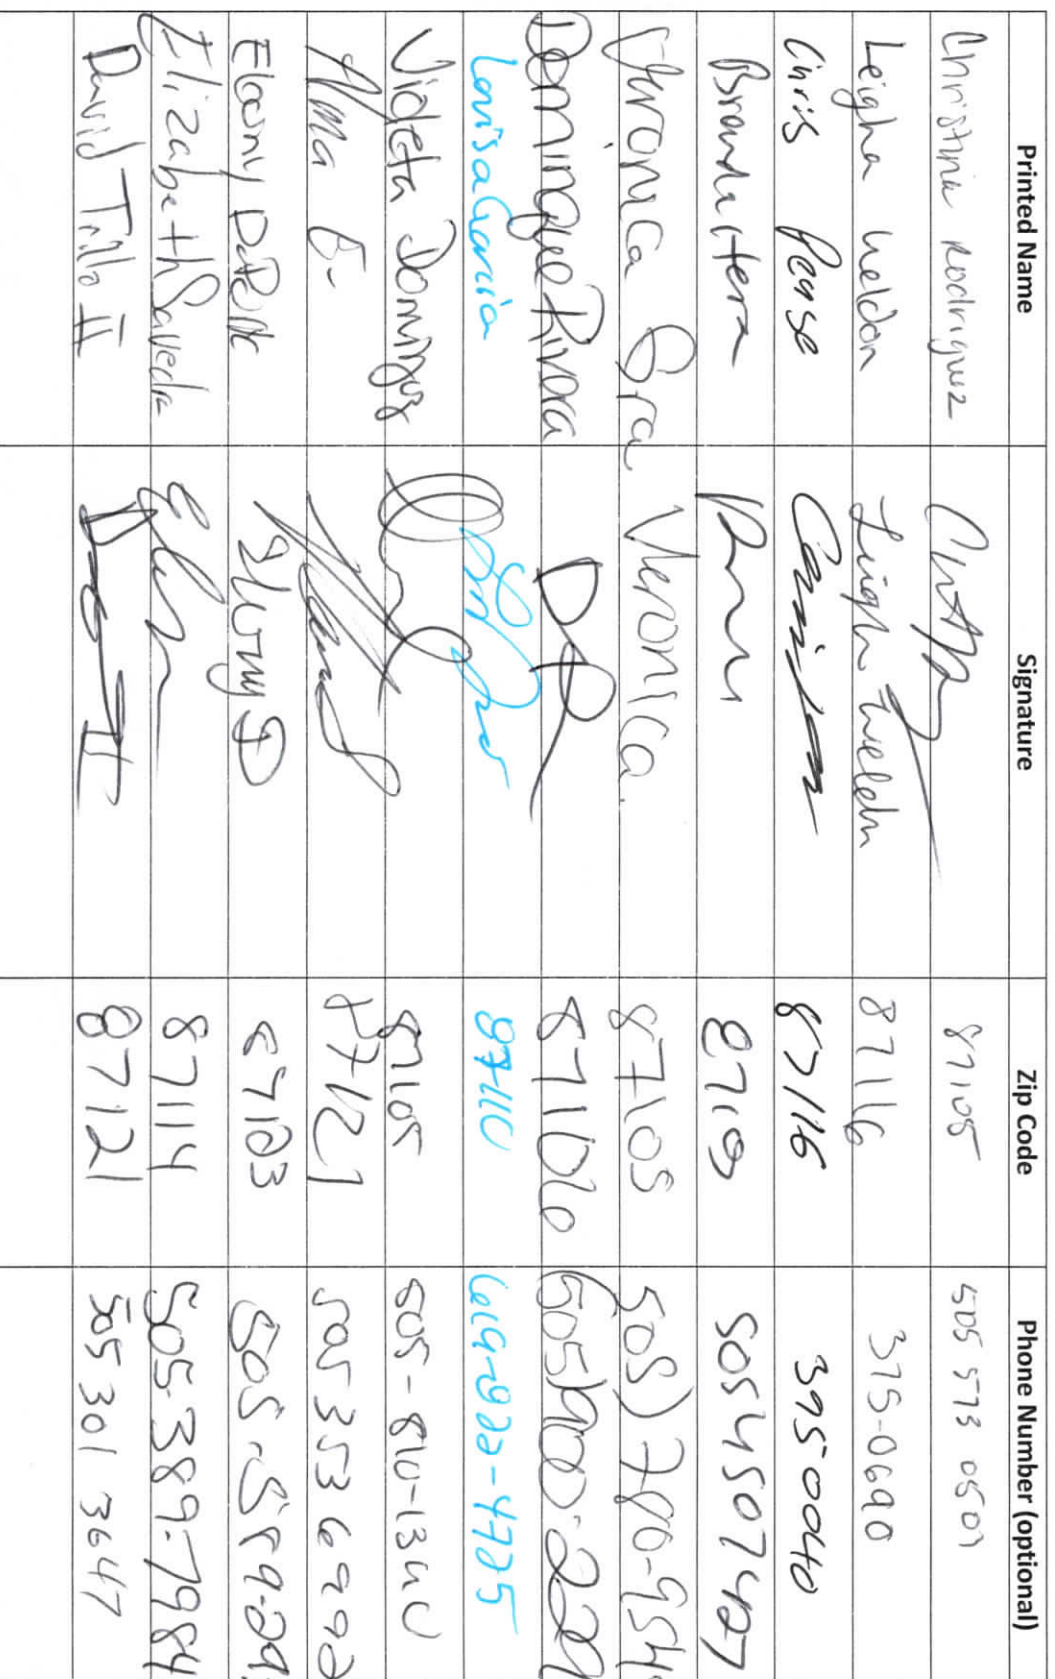 Printed Name Signature Zip Code Phone Number (optional)
Christina Rodriguez 87105 505 573 0501
Leigha Weldon Leigh Weldn 87116 375-0690
Chris Pense 87116 395 0040
8719 505 450 7427
Veronica Gra Veronica. 87105 505) 780-954
Deminque Rivera DR 87106 (505)
Louisa Garcia 87110 619-922-4725
Violeta Domingz 87105 505-810-1340
Alma B- 87121 505 353 6992
Ebony D 87123 505-589-29
Elizabeth Savedra 87114 505-389-7984
David Tillo II D II 87121 505 301 3647